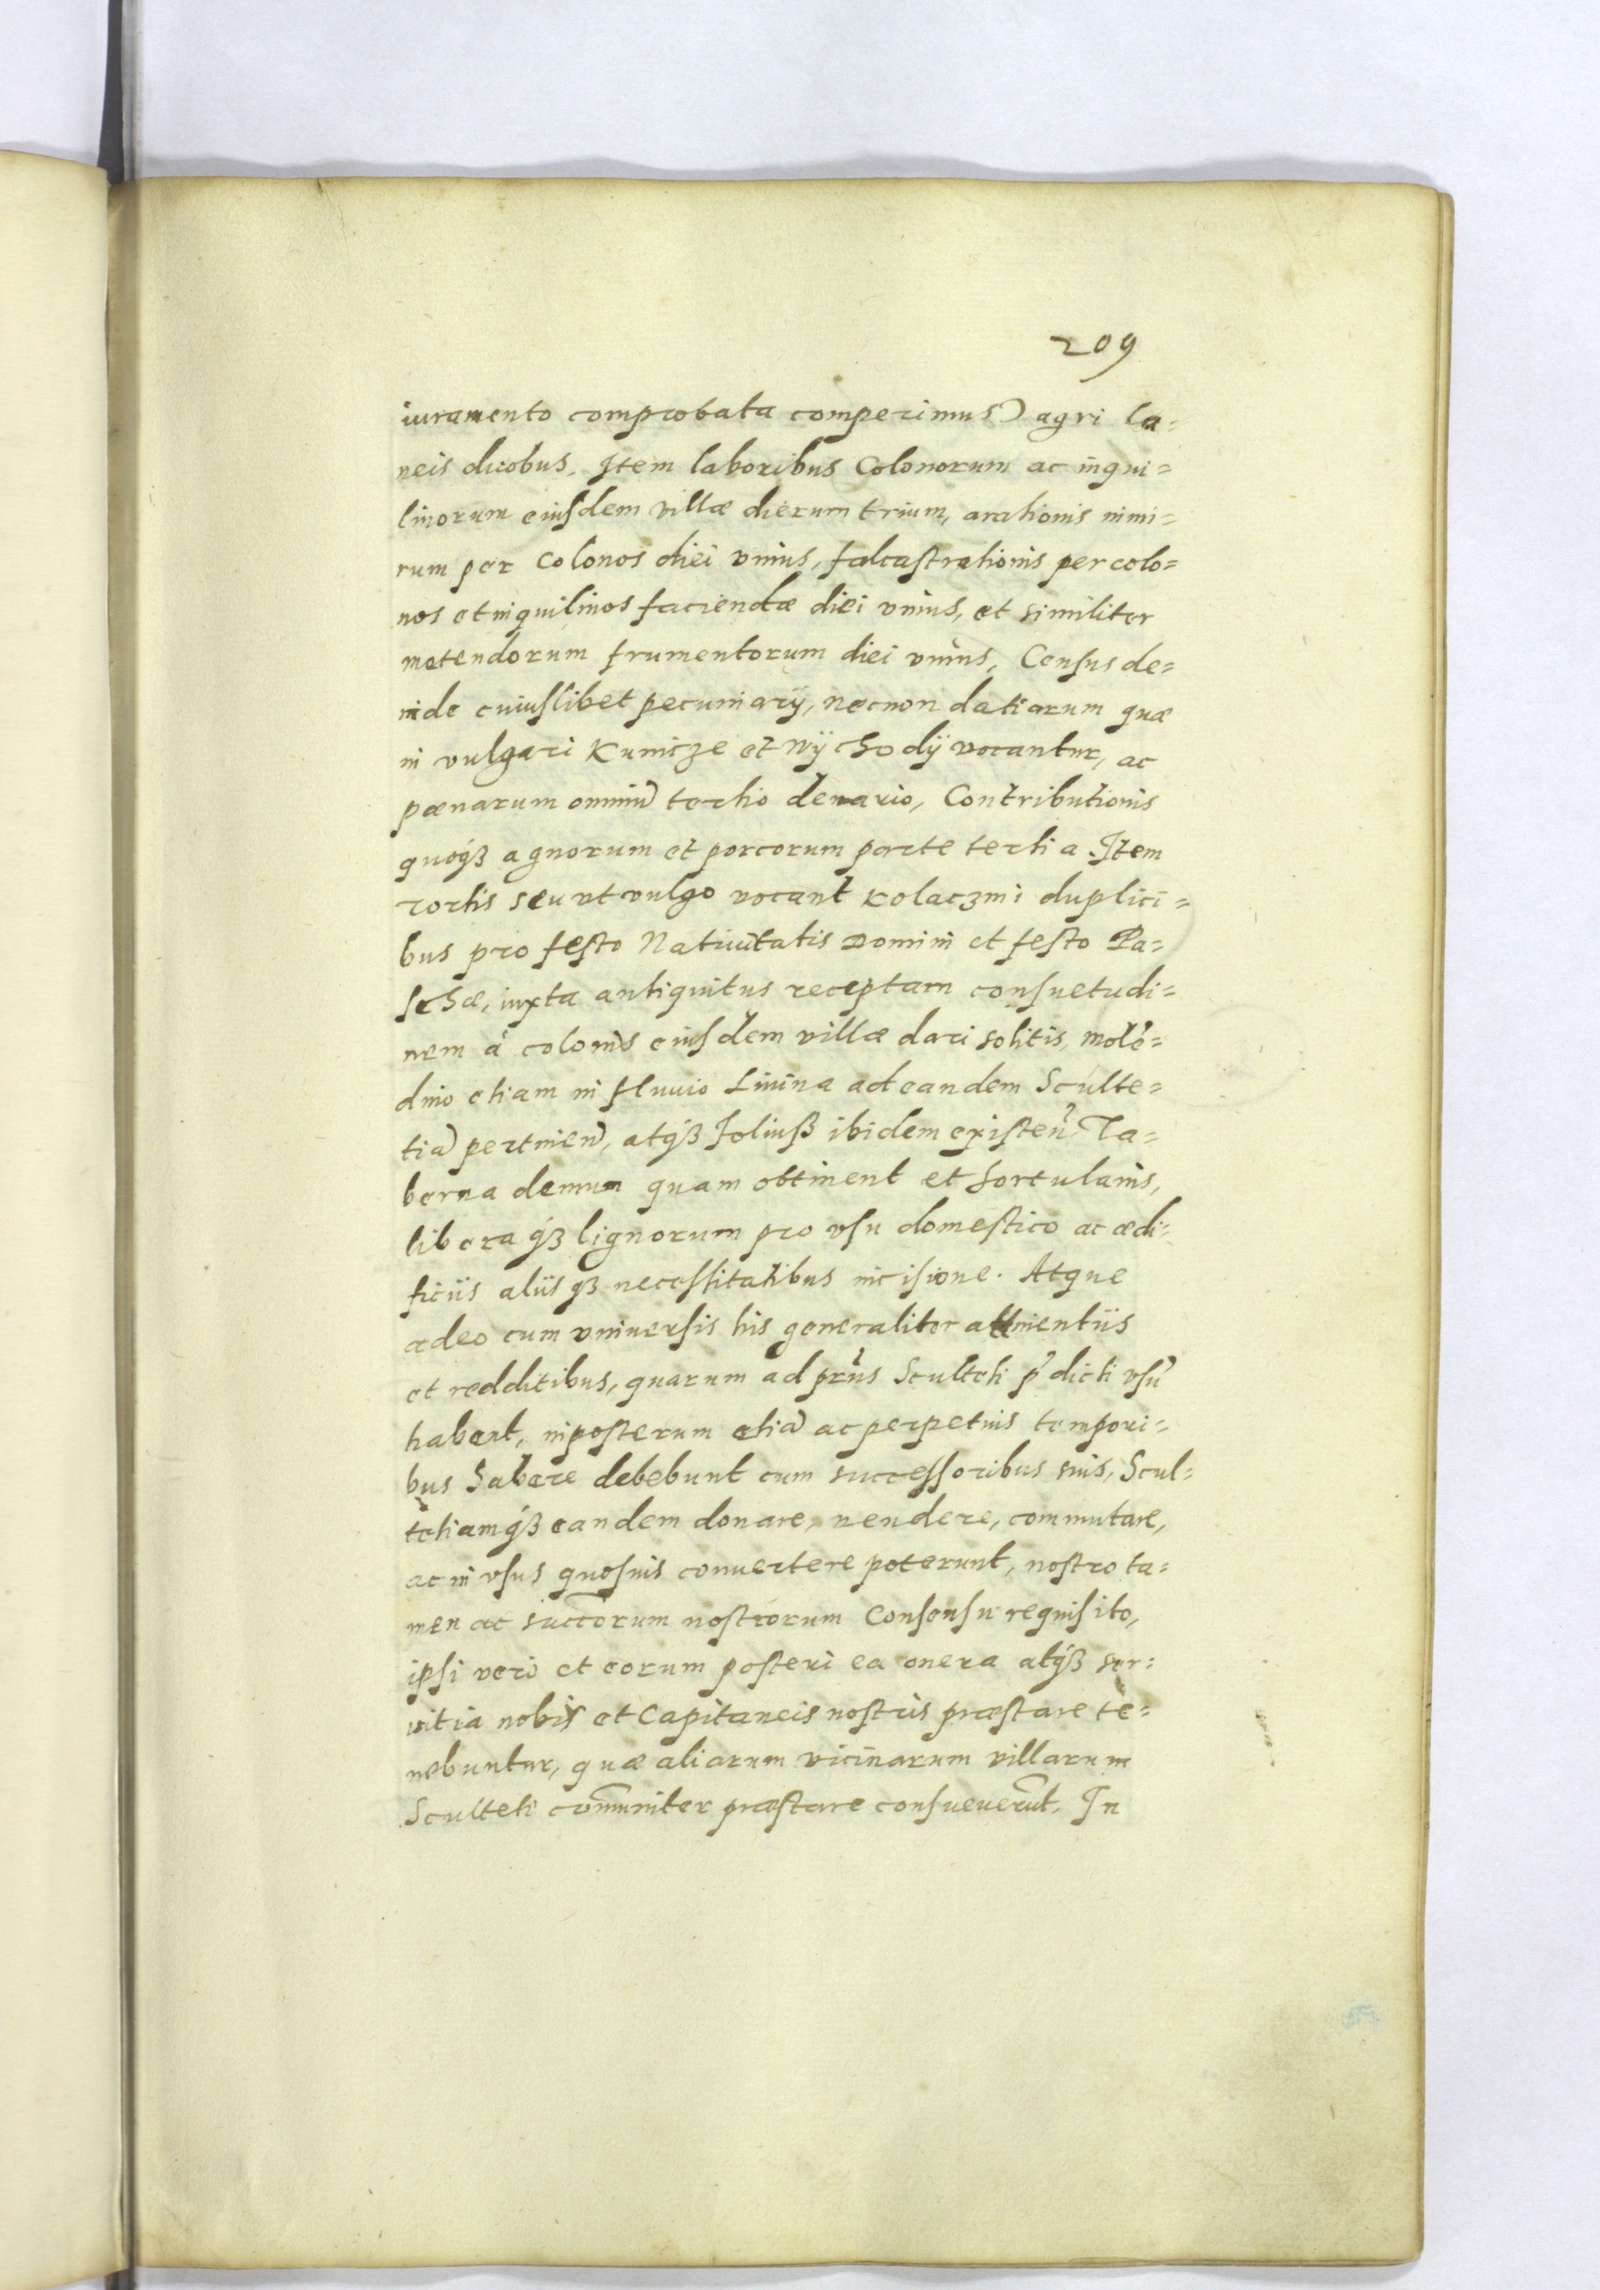 209
iuramento comprobata comperimus) agri la=
neis duobus. Item laboribus Colonorum ac inqui=
linorum eiusdem villæ dierum trium, arationis nimi=
rum per Colonos diei vnius, falcastrationis per colo=
nos et inquilinos faciendæ diei vnius, et similiter
metendorum frumentorum diei vnius, Census de=
inde cuiuslibet pecuniarij, necnon datiarum quæ
in vulgari Kunicze et Wÿchodÿ vocantur, ac
pœnarum omniũ tertio denario, Contributionis
quoqȝ agnorum et porcorum parte tertia. Item
tortis seu vt vulgo vocant Kolaczmi duplici=
bus pro festo Natiuitatis Domini et festo Pa=
schæ, iuxta antiquitus receptam consuetudi=
nem à colonis eiusdem villæ dari solitis, molẽ=
dino etiam in fluuio Linina ad eandem Sculte=
tiã pertinen̄, atqȝ foliusß ibidem existen̄, Ta=
berna demum quam obtinent et hortulanis,
liberaqȝ lignorum pro vsu domestico ac ædi=
ficiis aliisqȝ necessitatibus incisione. Atque
adeo cum vniuersis his generaliter attinentiis
et redditibus, quarum ad prñs Sculteti p̃dicti vsũ
habent, inposterum etiã ac perpetuis tempori=
bus habere debebunt cum successoribus suis, Scul=
tetiamqȝ eandem donare, vendere, commutare,
ac in vsus quosuis conuertere poterunt, nostro ta=
men ac succorum nostrorum Consensu requisito,
ipsi vero et eorum posteri ea onera atqȝ ser=
uitia nobis et Capitaneis nostris præstare te=
nebuntur, quæ aliarum vicinarum villarum
Sculteti com̃uniter præstare consueuerũt. In